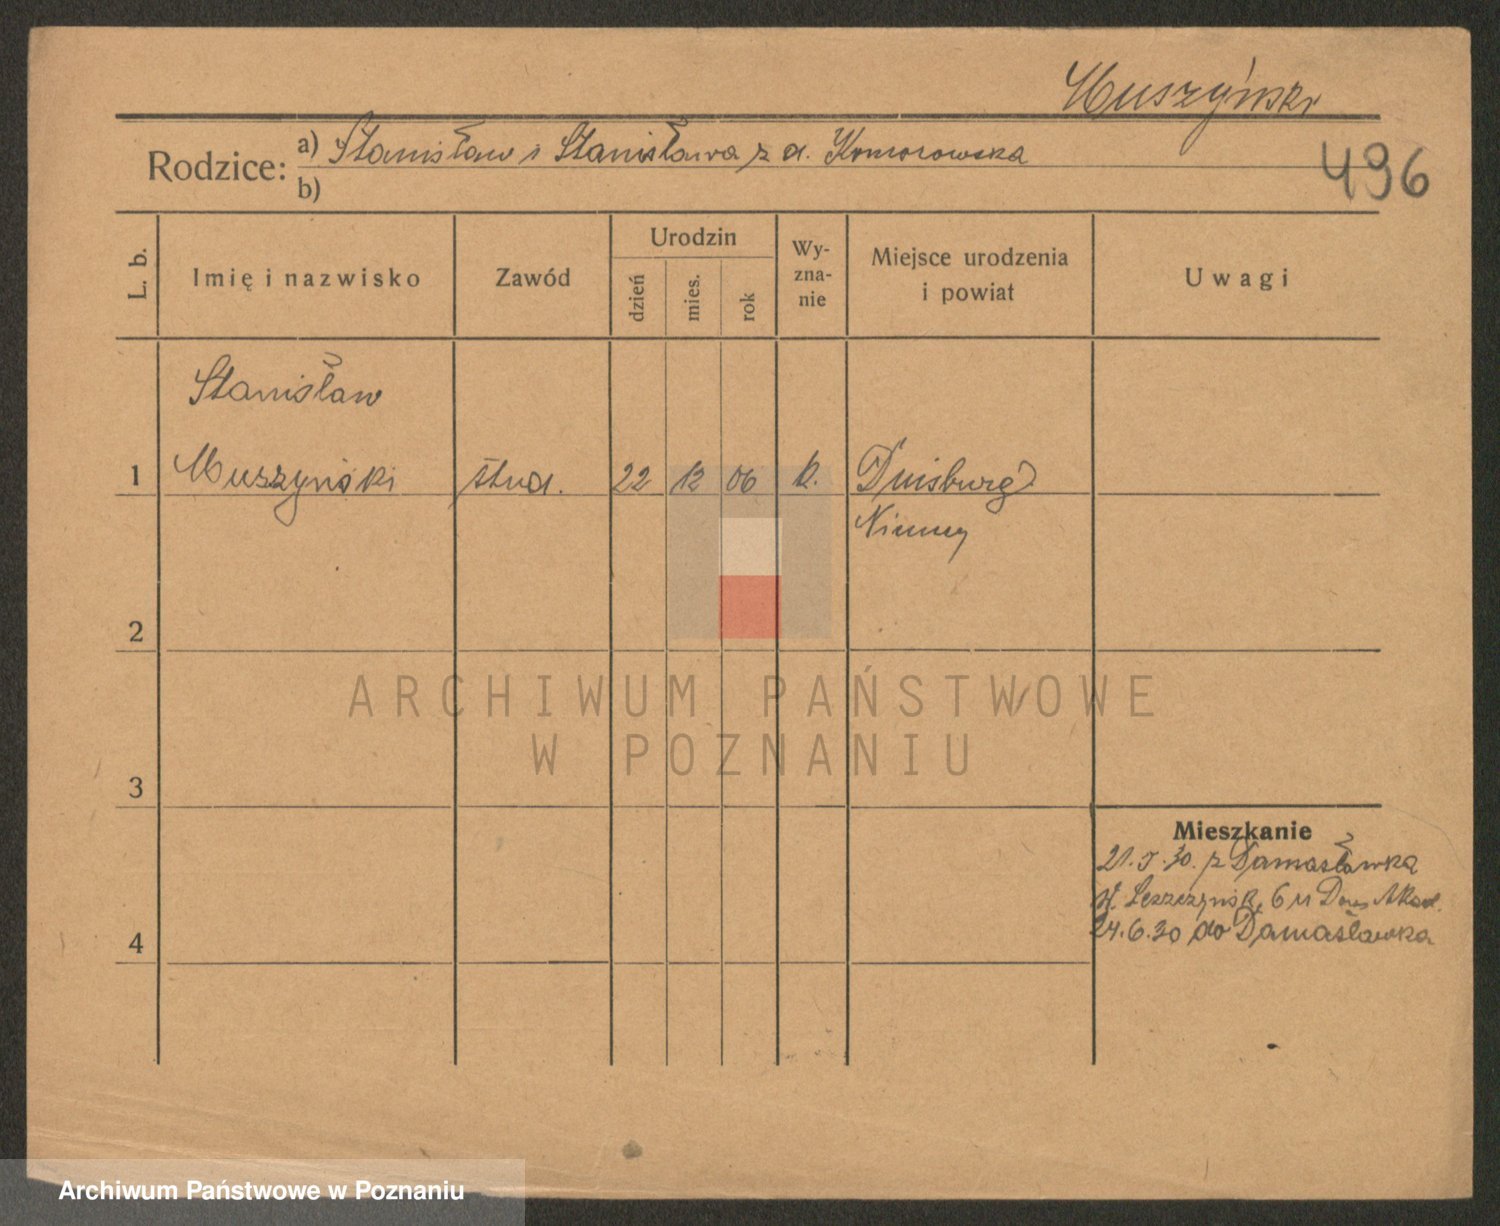 Muszyński
Rodzice: a) Stanisław i Stanisława z d. Komorowska
b)
496
L. b.
Imię i nazwisko
Zawód
Urodzin
dzień
mies.
rok
Wy-
zna-
nie
Miejsce urodzenia
i powiat
Uwagi
Stanisław
1 Muszyński stud. 22 12 06 k. Duisburg
Niemcy
2
ARCHIWUM PAŃSTWOWE
W POZNANIU
3
Mieszkanie
21. 5. 30. z Damasławka
Leszczyńsk. 6 u Dom Akad.
24. 6. 30 do Damasławka
4
Archiwum Państwowe w Poznaniu